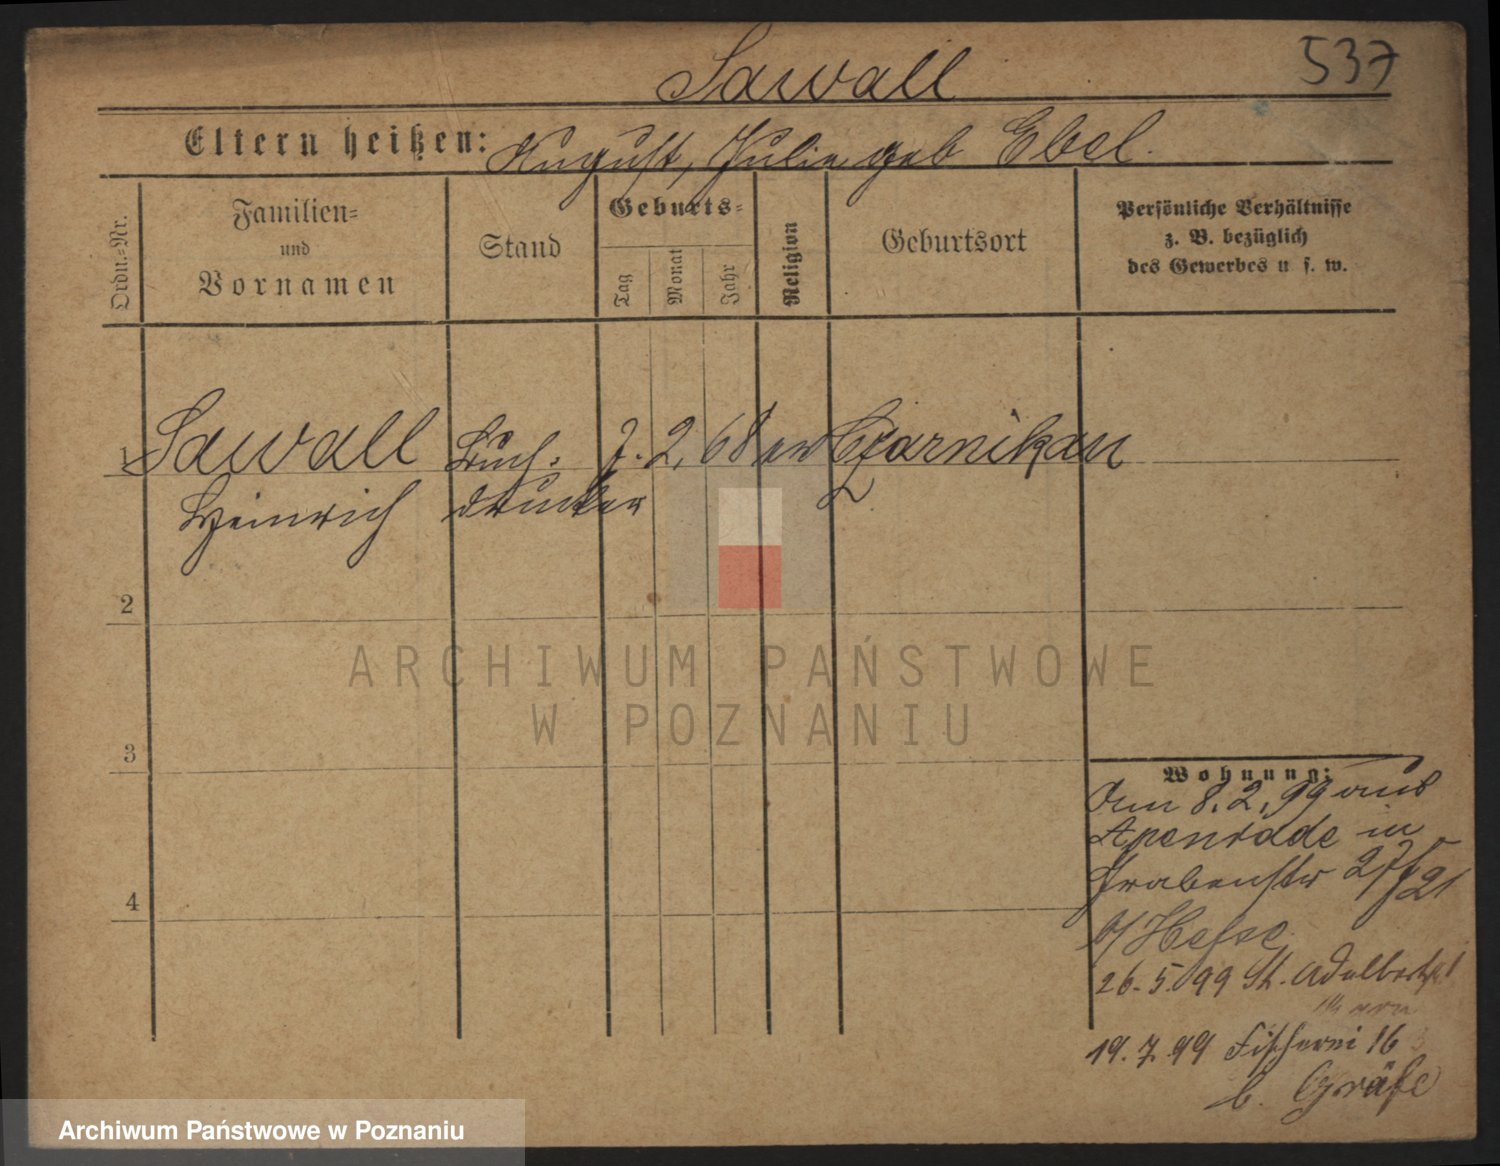 Sawall
537
Eltern heißen: August, Julie geb Ebel.
Ordn.-Nr.
Familien-
und
Vornamen
Stand
Geburts-
Tag
Monat
Jahr
Religion
Geburtsort
Persönliche Verhältnisse
z. B. bezüglich
des Gewerbes u s. w.
1 Sawall Buch- 7. 2. 68 ev Czarnikau
Heinrich drucker
2
ARCHIWUM PAŃSTWOWE
W POZNANIU
3
4
Wohnung:
Am 8.2.99 aus
Apenrade in
Grabenstr 27/21
b/ Hesse
26.5.99 St. Adalbert
19.7.99 Fischerei 16
b. Gräfe
Archiwum Państwowe w Poznaniu